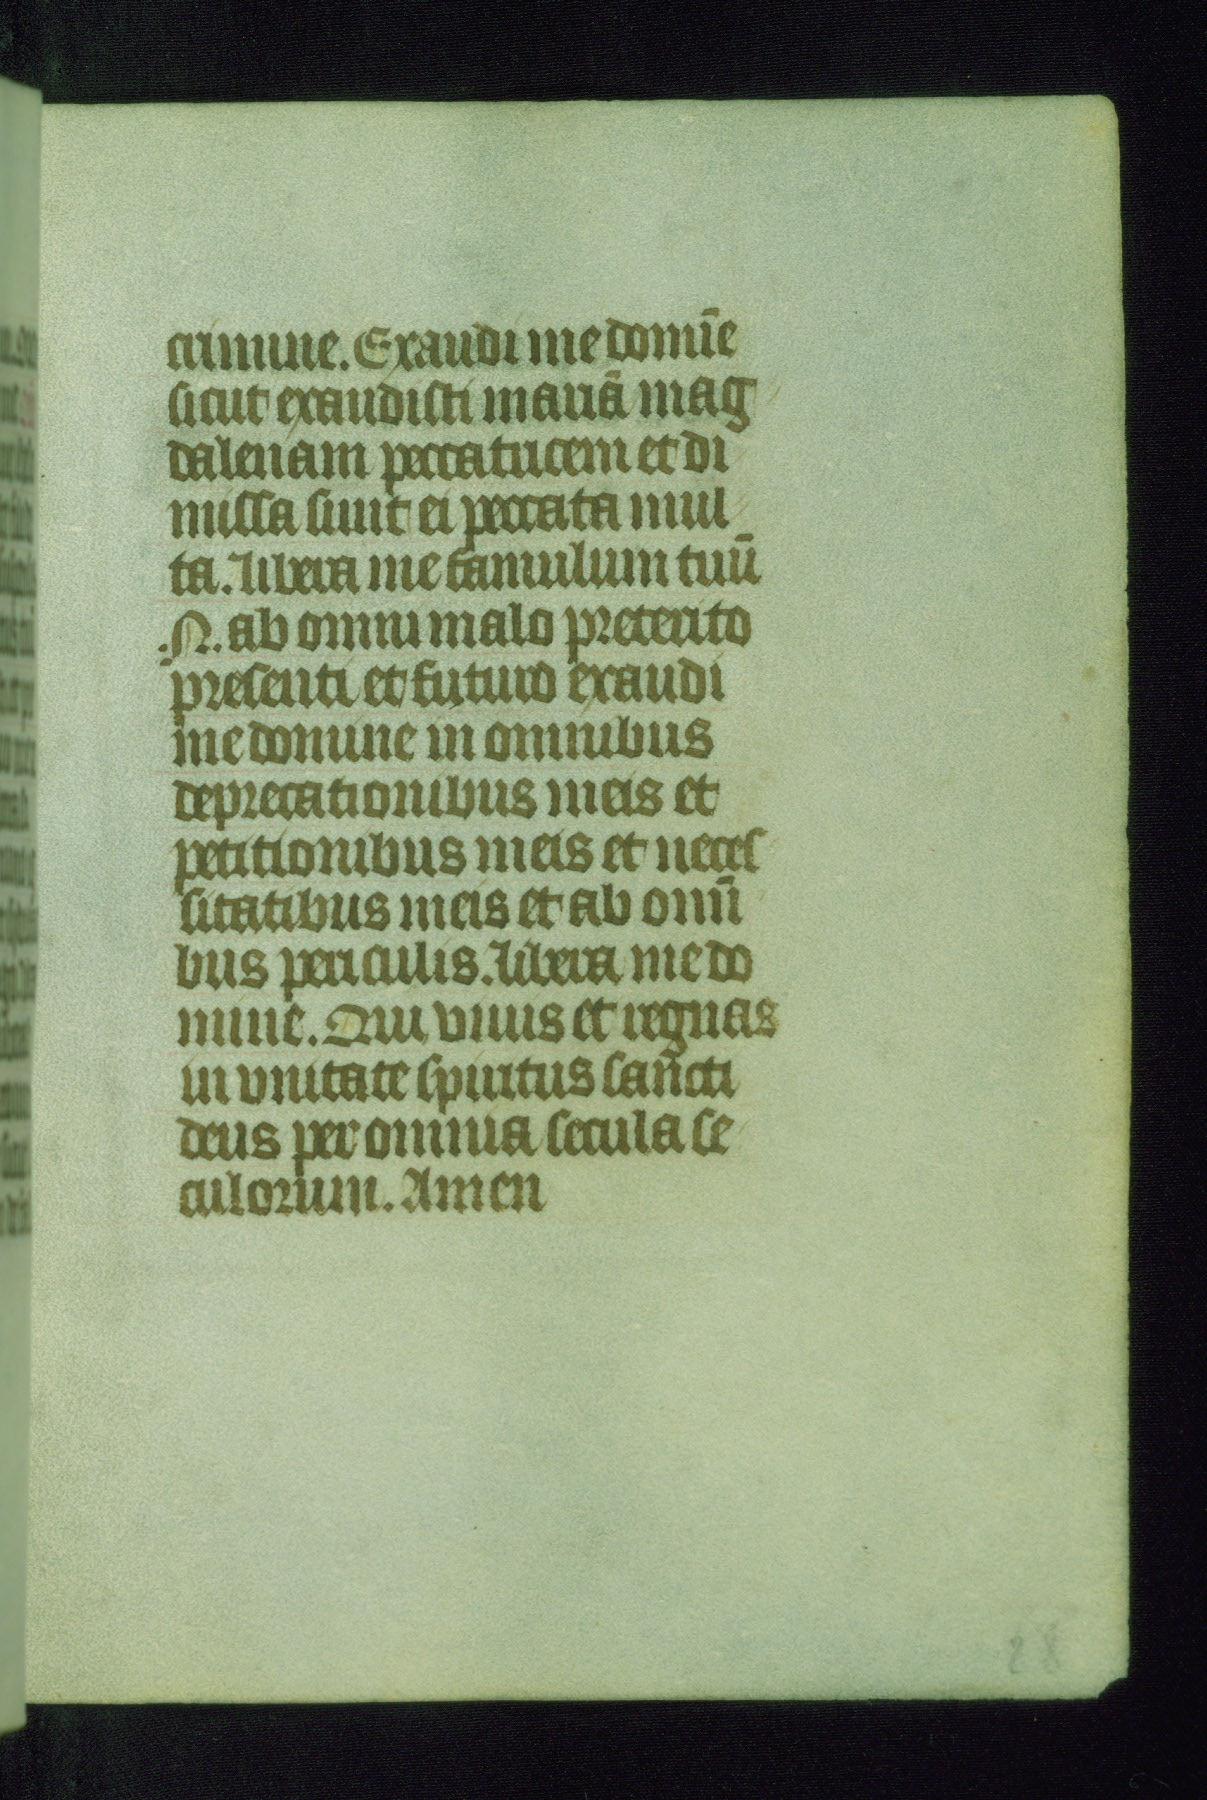 crimine. Exaudi me domīe
sicut exaudisti mariā mag
dalenam peccatricem et di
missa sunt ei peccata mul
ta. Libera me famulum tuū
.N. ab omni malo preterito
presenti et futuro exaudi
me domine in omnibus
deprecationibus meis et
petitionibus meis et neces
sitatibus meis et ab omī
bus periculis. Libera me do
mine. Qui vivis et regnas
in vnitate spiritus sancti
deus per omnia secula se
culorum. Amen
28